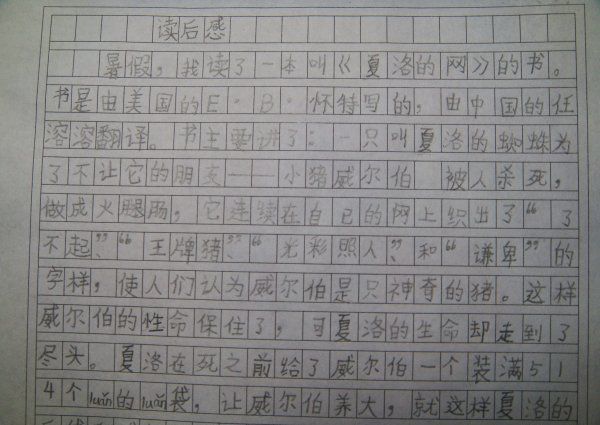 读后感
暑假，我读了一本叫《夏洛的网》的书。
书是由美国的E·B·怀特写的，由中国的任
溶溶翻译。书主要讲了：一只叫夏洛的蜘蛛为
了不让它的朋友——小猪威尔伯 被人杀死，
做成火腿肠，它连续在自己的网上织出了“了
不起”、“王牌猪”、“光彩照人”、和“谦卑”的
字样，使人们认为威尔伯是只神奇的猪。这样
威尔伯的性命保住了，可夏洛的生命却走到了
尽头。夏洛在死之前给了威尔伯一个装满51
4个luǎn的luǎn袋，让威尔伯养大，就这样夏洛的